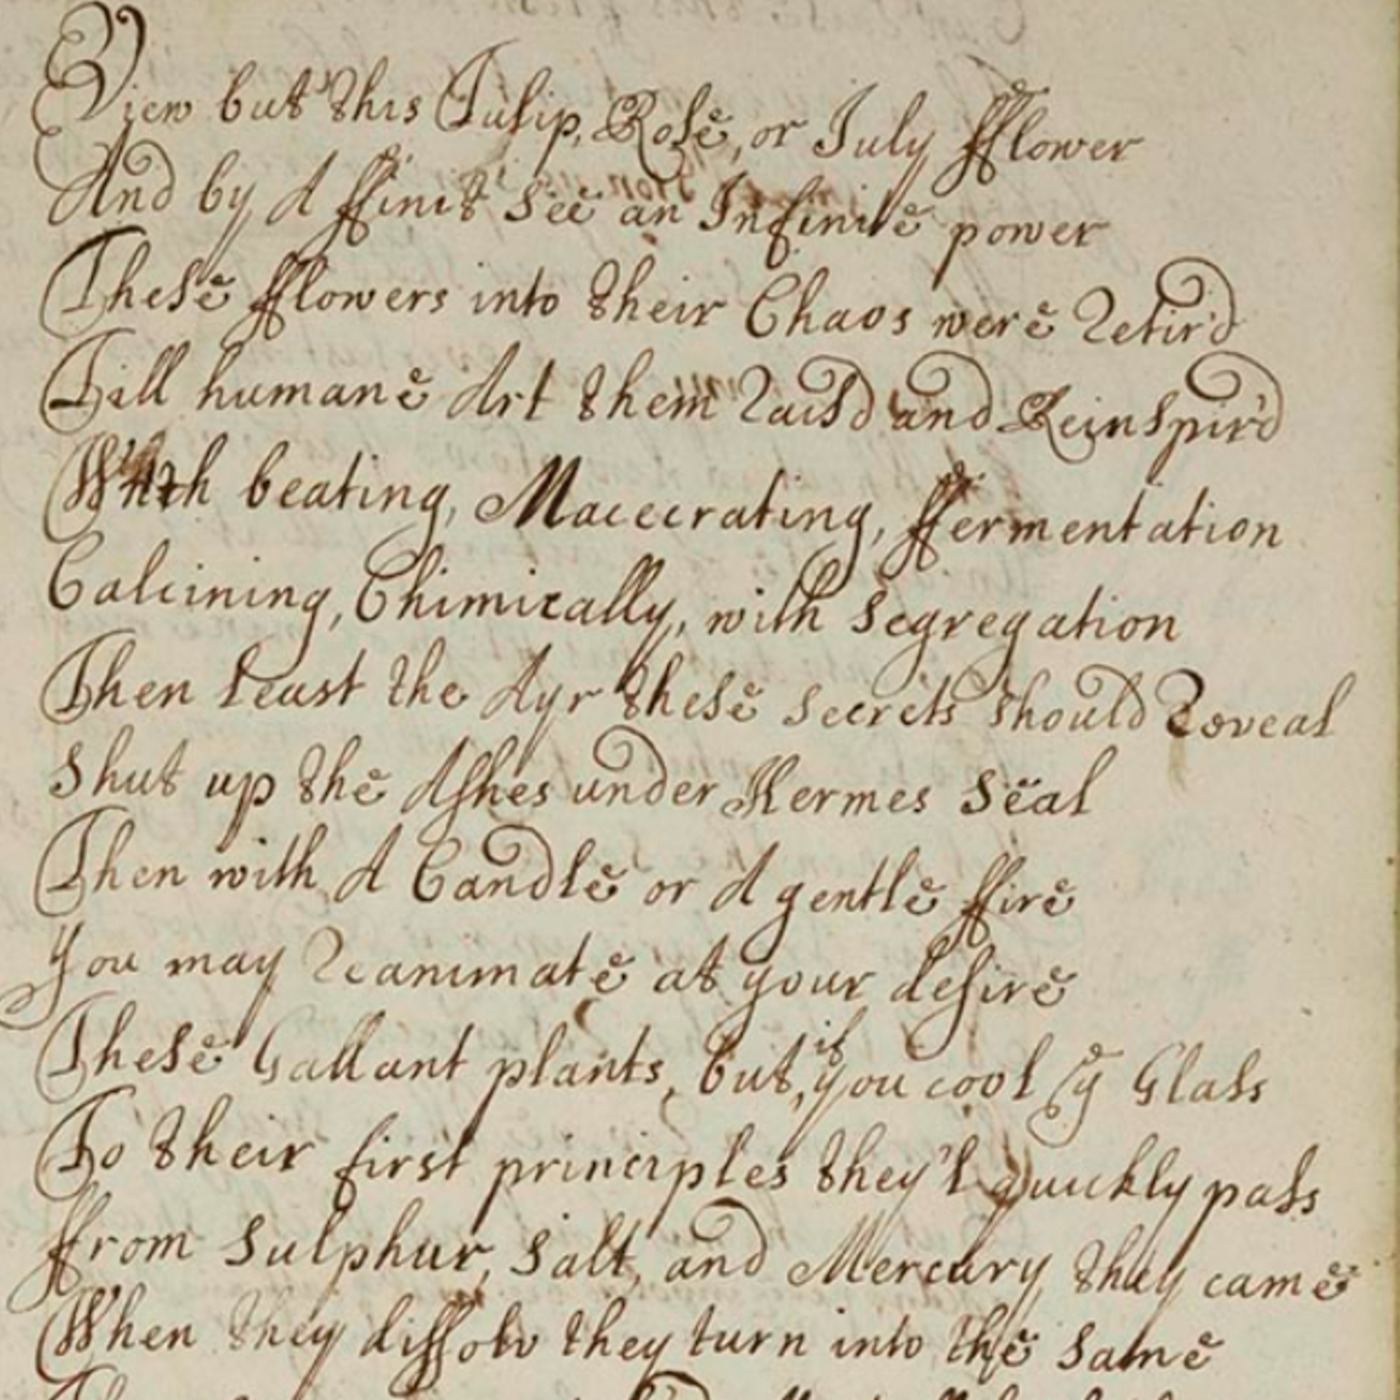 View but this Tulip, Rose, or July fflower
And by A ffinit See an Infinite power
These fflowers into their Chaos were Retir'd
Till humane Art them Rais'd and Reinspir'd
With beating, Macecrating, ffermentation
Calcining, Chimically, with Segregation
Then least the Ayr these secrets should Reveal
Shut up the Ashes under Hermes Seal
Then with A Candle or A gentle ffire
You may Reanimate at your desire
These Gallant plants, but, if you cool ye Glass
To their first principles they'l quickly pass
ffrom Sulphur, Salt, and Mercury they came
When they dissolv they turn into the same